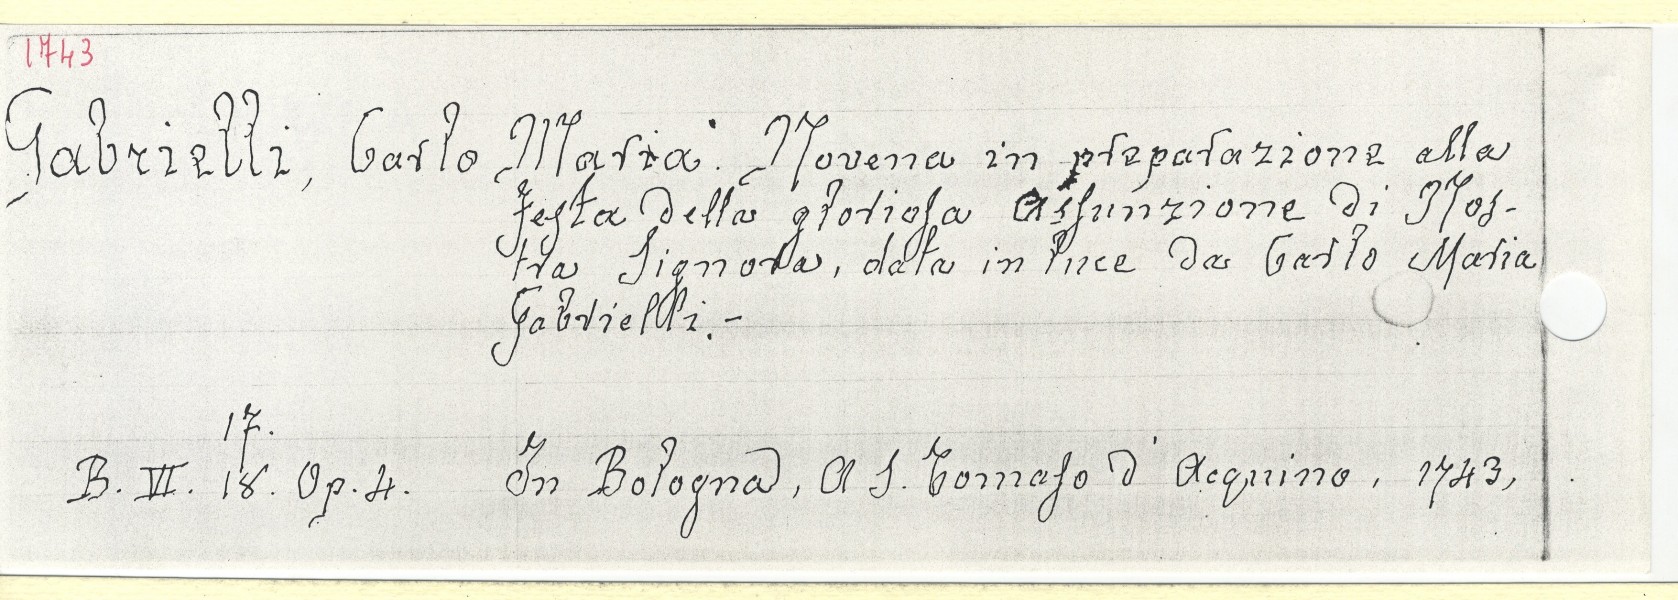 1743
Gabrielli, Carlo Maria. Novena in preparazione alla
festa della gloriosa Assunzione di Nos-
tra Signora, data in luce da Carlo Maria
Gabrielli.-
17.
B. VI. 18. Op. 4. In Bologna, A S. Tomaso d Acquino, 1743,